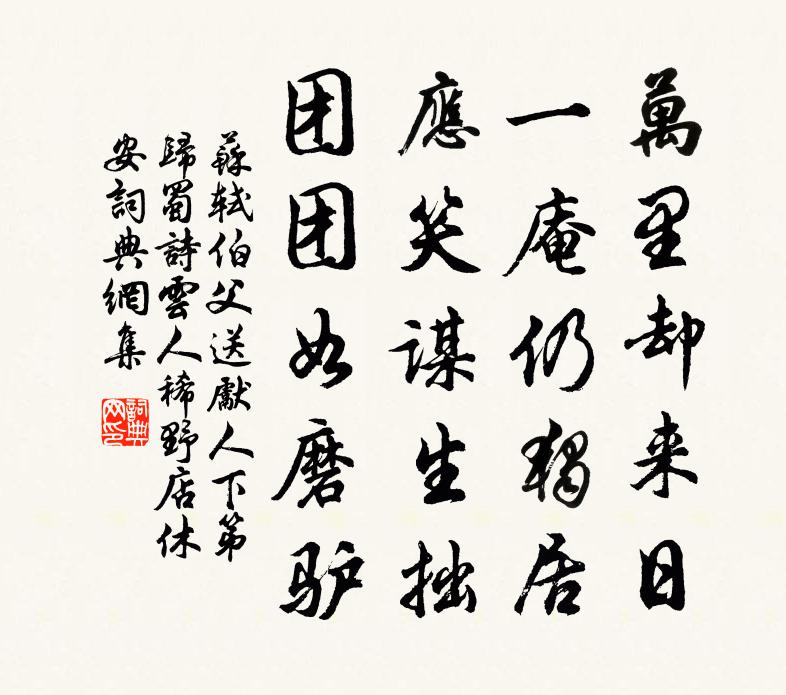 萬里却来日
一庵仍独居
應笑謀生拙
团团如磨驴
蘇軾伯父送獻人下第
歸蜀詩雲人稀野店休
安詞典網集
詞典
网印